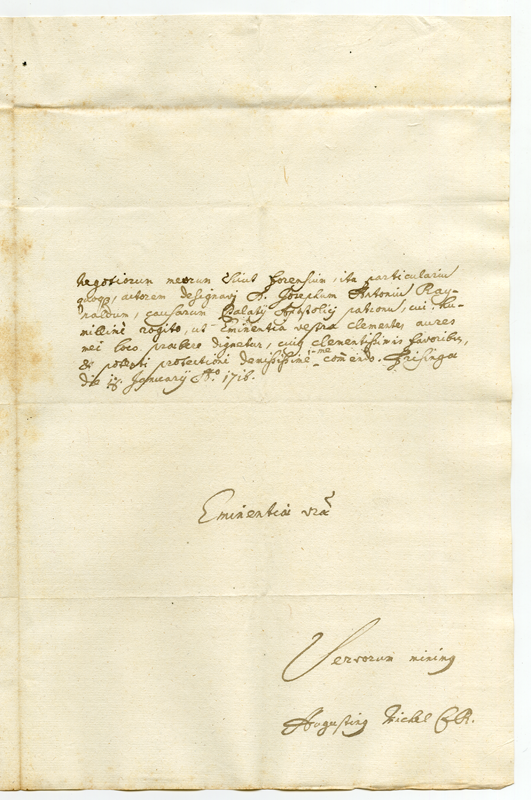 Negotiorum meorum sicut forensium, ita particulariū
quoq, actorem designavi D. Josephum Antoniū Ray-
naldum, causarum Palatij Aptstolici patronū, cui hu-
millime rogito, ut Eminentia vestra clementes aures
mei loco præbere dignetur, cuiq clementissimis favoribus,
& potenti protectioni demississime me com̄endo. Frisingæ
die 18. Januarij Ao. 1716.
Eminentiæ vræ
Servorum minimq
Augustinq Michel C.R.